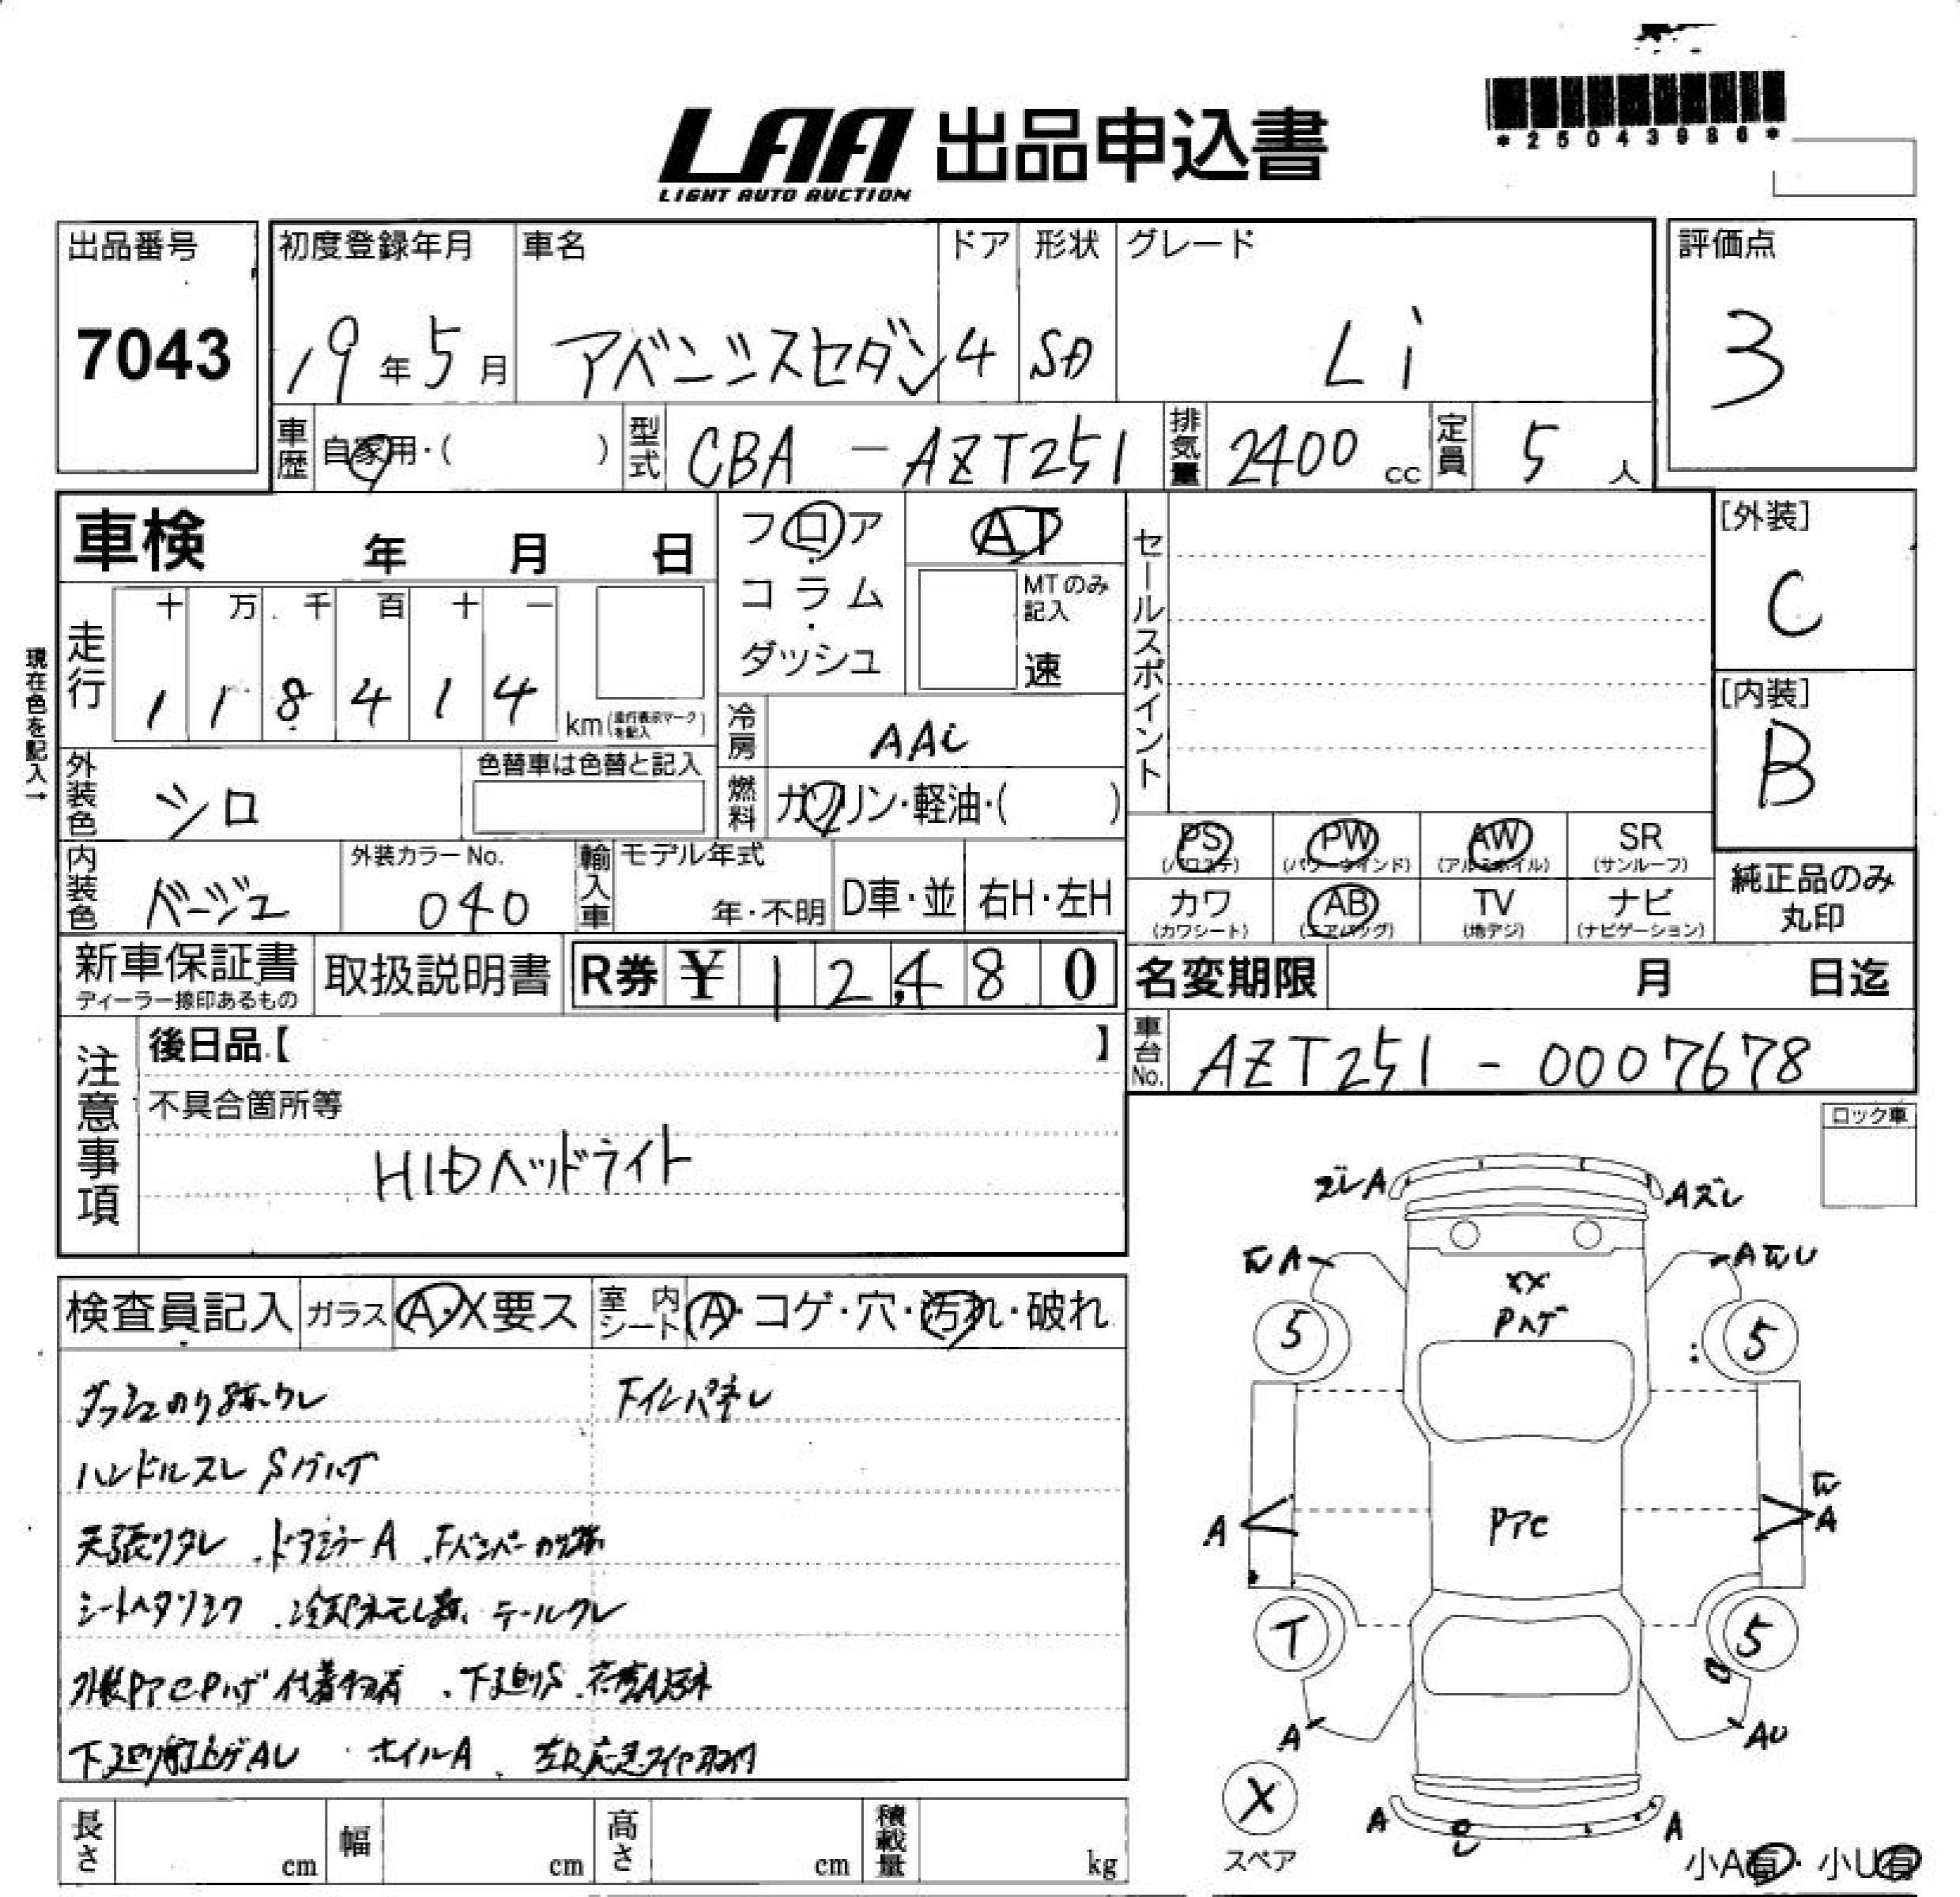 LAA 出品申込書
LIGHT AUTO AUCTION
*25043986*
出品番号 初度登録年月 車名 ドア 形状 グレード 評価点
7043 19年5月 アベンシスセダン 4 SD Li 3
車歴 自家用・( ) 型式 CBA - AZT251 排気量 2400 cc 定員 5 人
車検 年 月 日
フロア・コラム・ダッシュ
AT
MTのみ記入
速
セールスポイント
[外装]
C
[内装]
B
現在色を記入→
走行 十 万 千 百 十 一
1 1 8 4 1 4 km(走行表示マークを記入)
冷房 AAC
外装色 シロ 色替車は色替と記入
燃料 ガソリン・軽油・( )
PS PW AW SR
(パワステ) (パワーウインド) (アルミホイル) (サンルーフ)
カワ AB TV ナビ
(カワシート) (エアバッグ) (地デジ) (ナビゲーション)
純正品のみ
丸印
内装色 ベージュ 外装カラーNo. 040 輸入車 モデル年式 年・不明 D車・並 右H・左H
新車保証書 取扱説明書 R券 ¥ 12,480
ディーラー捺印あるもの
名変期限 月 日迄
車台No. AZT251 - 0007678
注意事項
後日品【 】
不具合箇所等
HIDヘッドライト
ロック車
検査員記入 ガラス A・X要ス 室内シート A・コゲ・穴・汚れ・破れ
ダッシュのり跡、ワレ
ハンドルスレ Sノブハゲ
天張りタレ ・ドアミラーA
シートヘタリ
外装PTCPハゲ 付着物有 ・下廻りS
下廻り AU ・ホイルA
ズレA Aズレ
A
XX
Pハゲ
5 5
A
PTC
A
T 5
A AU
X
スペア
A A
小A有・小U有
長さ cm 幅 cm 高さ cm 積載量 kg